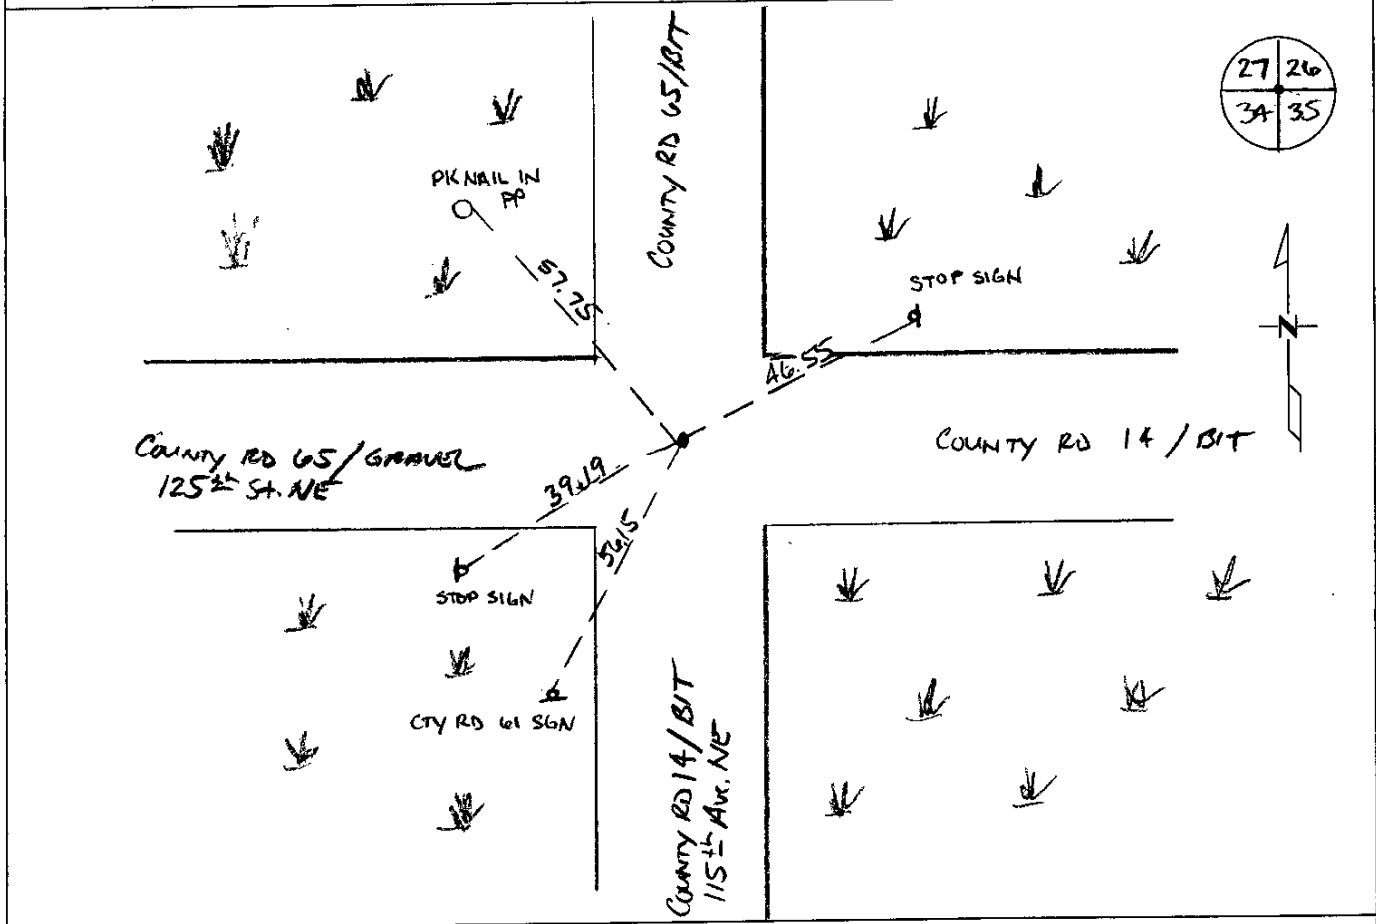 COUNTY RD 65/BIT
27 26
34 35
PK NAIL IN
PP
57.75
STOP SIGN
46.55
N
COUNTY RD 65/GRAVEL
125th St. NE
COUNTY RD 14/BIT
39.19
56.15
STOP SIGN
CTY RD 61 SGN
COUNTY RD 14/BIT
115th Ave. NE